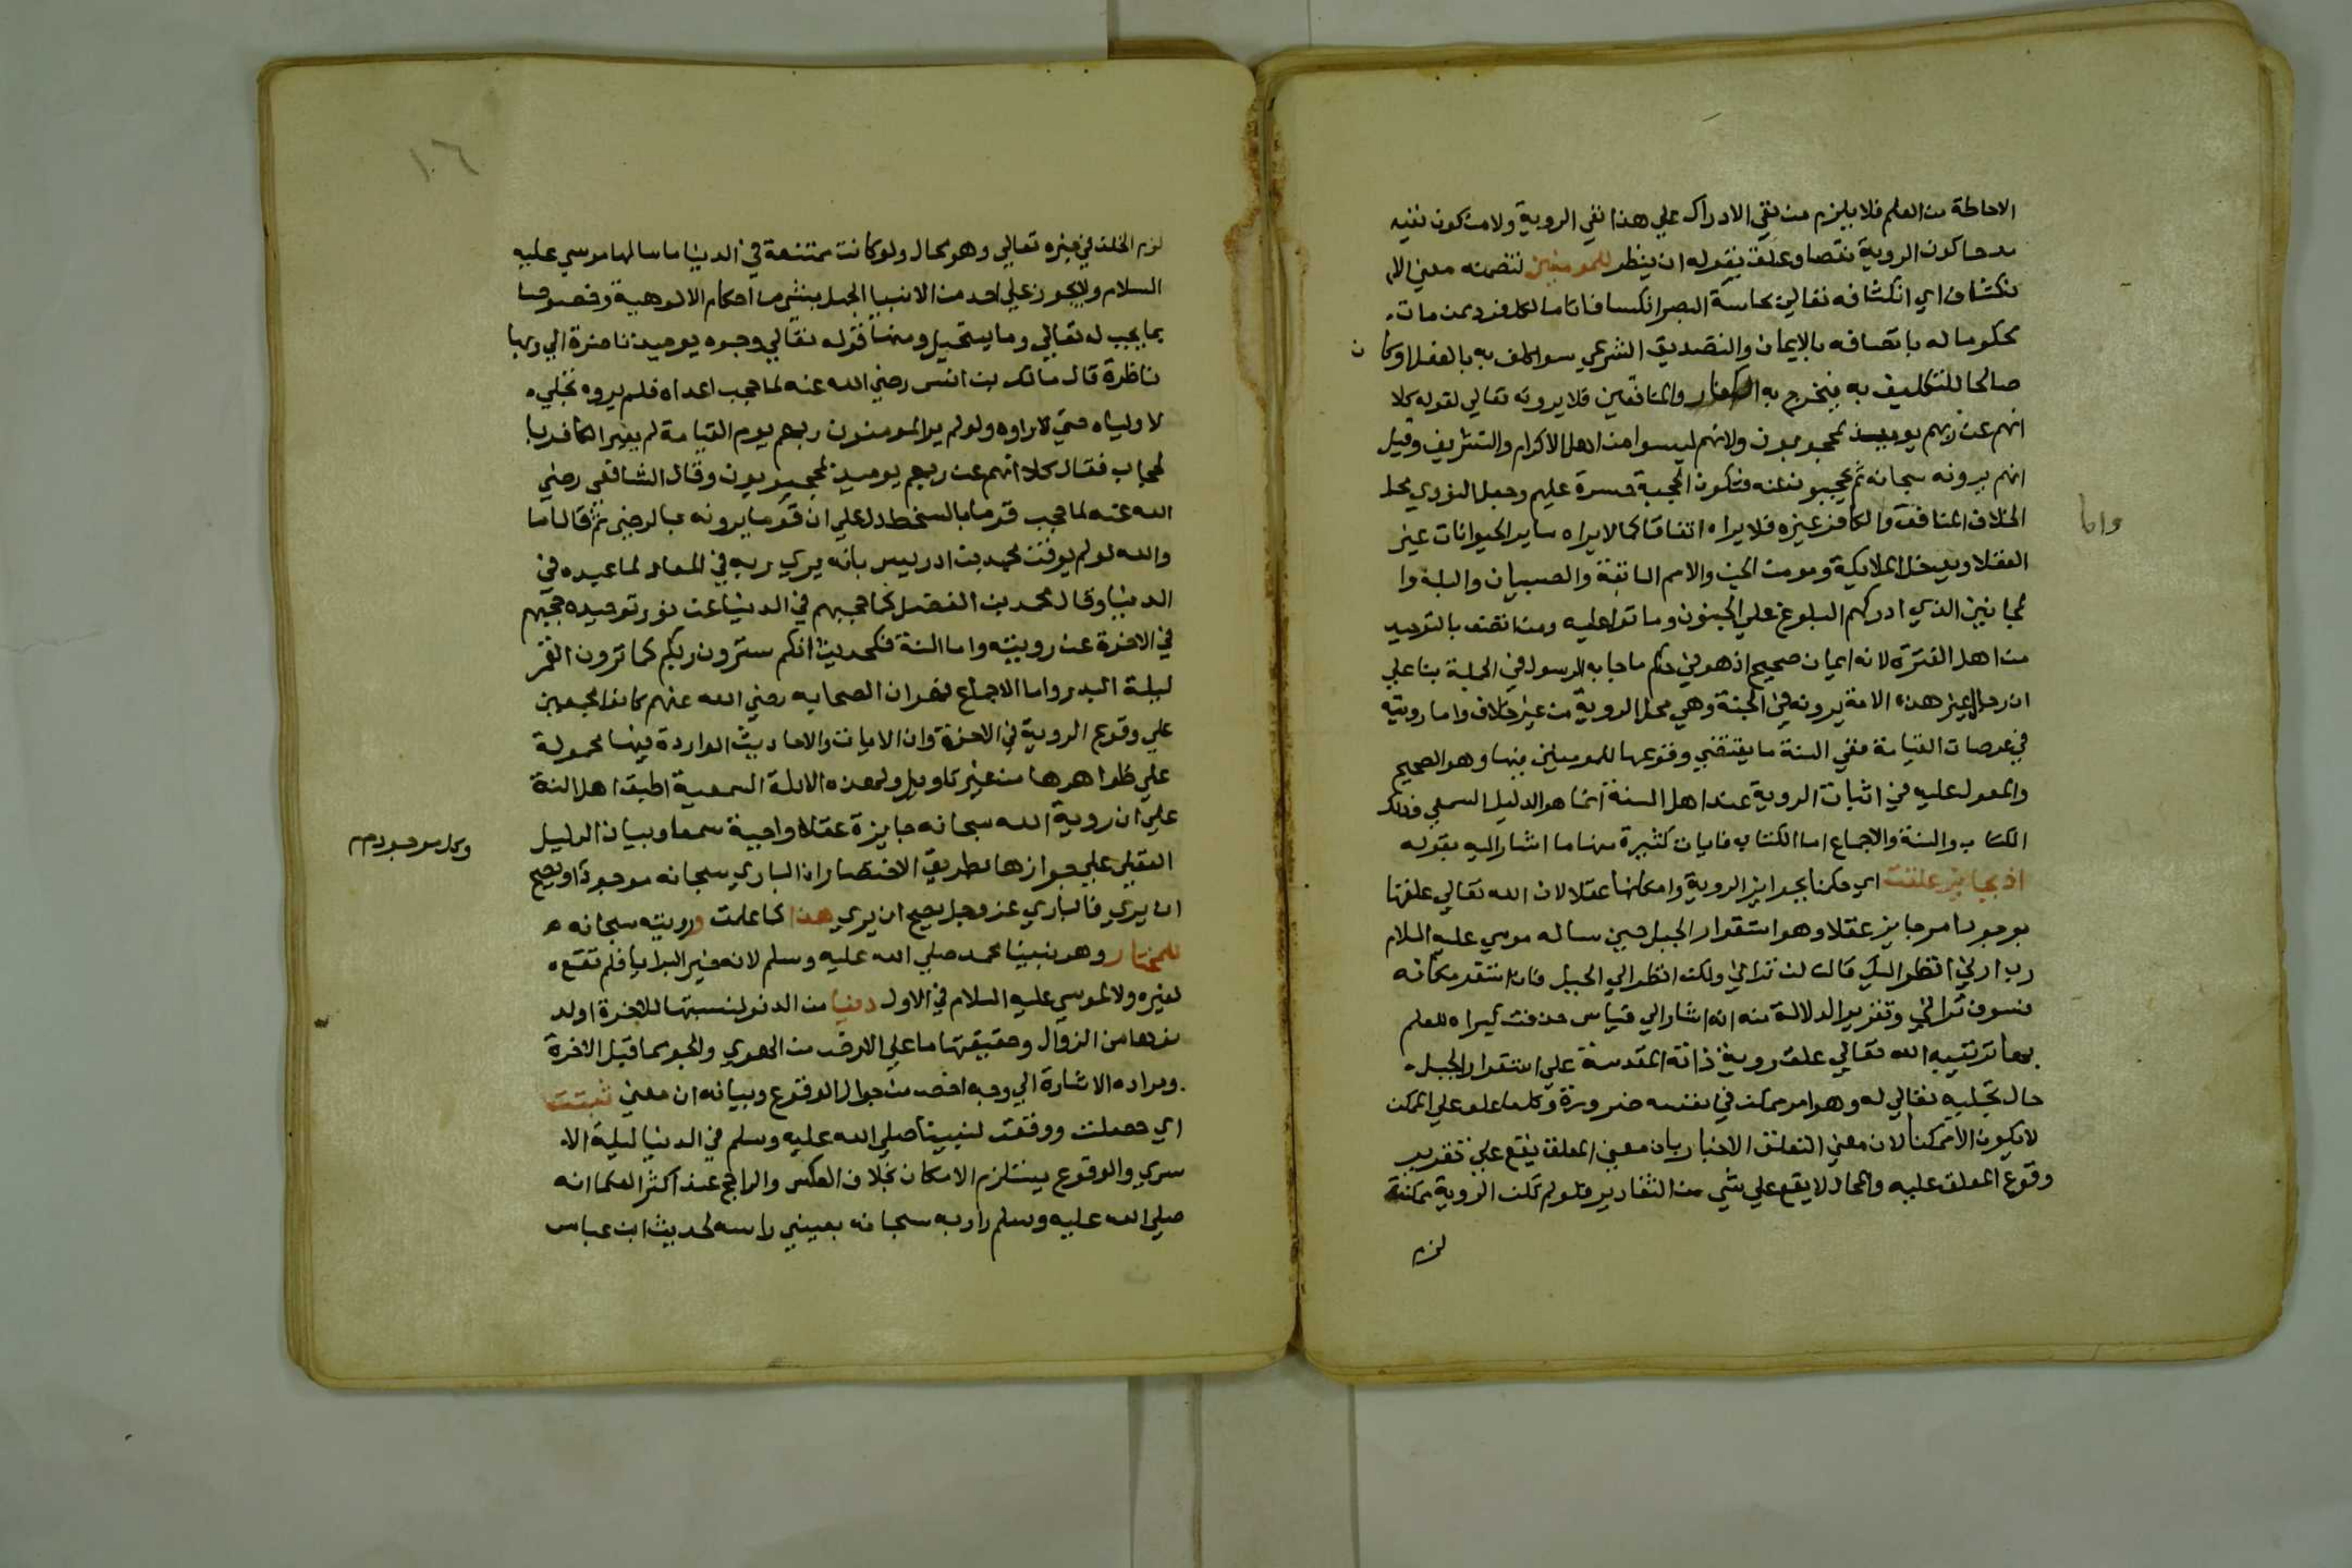 الاحاطة من العلم فلا يلزم من نفي الادراك علي هذا نفي الروية ولا من كون نفيه
مدحا كون الروية نقصا وعلق بقوله ان ينظر للمومنين لتضمنه معني الا
نكشاف اي انكشافه تعالي بحاسة البصر انكسافا تاما لكل فرد ممن مات
محكوما له باتصافه بالايمان والتصديق الشرعي سوا كلف به بالفعل او كان
صالحا للتكليف به فيخرج به الكفار والمنافقين فلا يرونه تعالي لقوله كلا
انهم عن ربهم يوميذ لمحجوبون ولانهم ليسوا من اهل الاكرام والتشريف وقيل
انهم يرونه سبحانه ثم يحجبون عنه فتكون الحجبة حسرة عليهم وجعل النووي محل
الخلاف المنافق واما الكافر غيره فلا يراه اتفاقا كما لا يراه ساير الحيوانات غير
العقلا ويدخل الملايكة ومومن الجن والامم السابقة والصبيان والبله وا
لمجانين الذي ادركهم البلوغ علي الجنون وماتوا عليه ومن اتصف بالتوحيد
من اهل الفترة لانه ايمان صحيح اذ هو في حكم ما جا به الرسول في الجملة بنا علي
ان رجال غير هذه الامة يرونه في الجنة وهي محل الروية من غير خلاف واما رويته
في عرصات القيامة ففي السنة ما يقتضي وقوعها للمومنين فيها وهو الصحيح
والمعول عليه في اثبات الروية عند اهل السنة انما هو الدليل السمعي وذلك
الكتاب والسنة والاجماع اما الكتاب فايات كثيرة منها ما اشار اليه بقوله
اذ بجايز علقت اي حكمنا بجواز الروية وامكانها عقلا لان الله تعالي علقها
بوجود امر جايز عقلا وهو استقرار الجبل حين ساله موسي عليه السلام
رب ارني انظر اليك قال لن تراني ولكن انظر الي الجبل فان استقر مكانه
فسوف تراني وتقرير الدلالة منه انه اشار الي قياس حذفت كبراه للعلم
بها ترتيبه الله تعالي علق روية ذاته المقدسة علي استقرار الجبل
حال تجليه تعالي له وهو امر ممكن في نفسه ضرورة وكلما علق علي الممكن
لا يكون الا ممكنا لان معني التعلق الاخبار بان معني المعلق يقع علي تقدير
وقوع المعلق عليه والمحال لا يقع علي شي من التقادير فلو لم تكن الروية ممكنة
لزم
لزم الخلف في خبره تعالي وهو محال ولو كانت ممتنعة في الدنيا ما سالها موسي عليه
السلام ولا يجوز علي احد من الانبيا الجهل بشي من احكام الالوهية وخصوصا
بما يجب له تعالي وما يستحيل ومنها قوله تعالي وجوه يوميذ ناضرة الي ربها
ناظرة قال مالك بن انس رضي الله عنه لما حجب اعداه فلم يروه تجلي
لاوليايه حتي راوه ولو لم ير المومنون ربهم يوم القيامة لم يعير الكافر با
لحجاب فقال كلا انهم عن ربهم يوميذ لمحجوبون وقال الشافعي رضي
الله عنه لما حجب قوما بالسخط دل علي ان قوما يرونه بالرضي ثم قال اما
والله لو لم يوقن محمد بن ادريس بانه يري ربه في المعاد لما عبده في
الدنيا وقال محمد بن الفضل كما حجبهم في الدنيا عن نور توحيده حجبهم
في الاخرة عن رويته واما السنة فكحديث انكم سترون ربكم كما ترون القمر
ليلة البدر واما الاجماع فهو ان الصحابه رضي الله عنهم كانوا مجمعين
علي وقوع الروية في الاخرة وان الايات والاحاديث الواردة فيها محمولة
علي ظواهرها من غير تاويل ولهذه الادلة السمعية اطبق اهل السنة
علي ان روية الله سبحانه جايزة عقلا واجبة سمعا وبيان الدليل
العقلي علي جوازها بطريق الاختصار ان الباري سبحانه موجود وكل موجود يصح
ان يري فالباري عز وجل يصح ان يري هذا كما علمت ورويته سبحانه
للمختار وهو نبينا محمد صلي الله عليه وسلم لانه خير البرايا فلم تقع
لغيره ولا لموسي عليه السلام في الاول دنيا من الدنو لنسبتها للاخرة او لد
نوها من الزوال وحقيقتها ما علي الارض من الهوي والجو مما قبل الاخرة
ومراده الاشارة الي وجه اخص من جواز الوقوع وبيانه ان معني ثبتت
اي حصلت ووقعت لنبينا صلي الله عليه وسلم في الدنيا ليلة الا
سري والوقوع يستلزم الامكان بخلاف العكس والراجح عند اكثر العلما انه
صلي الله عليه وسلم راي ربه سبحانه بعيني راسه لحديث ابن عباس
١٠٦